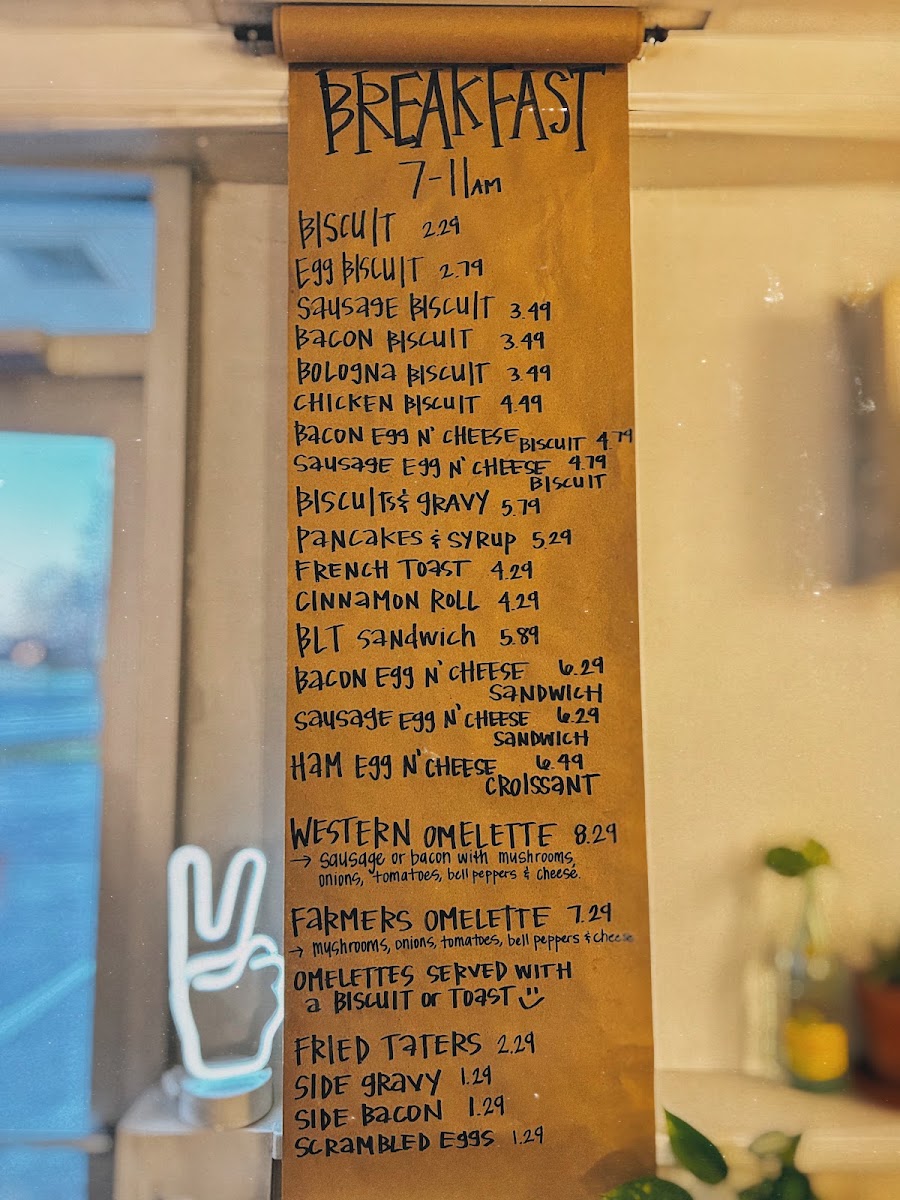 BREAKFAST
7-11AM
BISCUIT 2.29
Egg BISCUIT 2.79
Sausage BISCUIT 3.49
BaCON BISCUIT 3.49
BOLOgNa BISCUIT 3.49
CHICKEN BISCUIT 4.49
BaCON Egg N' CHEESE BISCUIT 4.79
Sausage Egg N' CHEESE 4.79
BISCUIT
BISCUITS & gRAVY 5.79
PaNCaKES & SYRUP 5.29
FRENCH TOaST 4.29
CINNaMON ROLL 4.29
BLT Sandwich 5.89
BaCON Egg N' CHEESE 6.29
SaNDWICH
Sausage Egg N' CHEESE 6.29
SaNDWICH
HaM Egg N' CHEESE 6.49
CROISSaNT
WESTERN OMELETTE 8.29
→ sausage or bacon with mushrooms,
onions, tomatoes, bell peppers & cheese.
FaRMERS OMELETTE 7.29
→ mushrooms, onions, tomatoes, bell peppers & cheese
OMELETTES SERVED WITH
a BISCUIT or TOaST :)
FRIED TaTERS 2.29
SIDE gRaVY 1.29
SIDE BaCON 1.29
SCRaMBLED Eggs 1.29